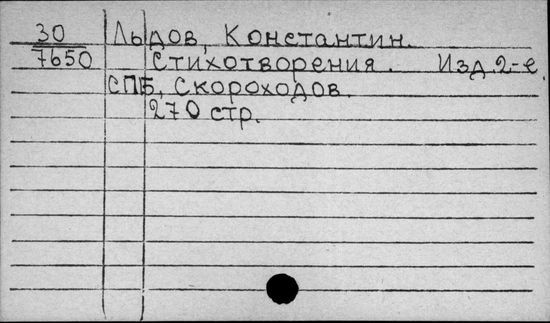 30 Льдов, Константин.
7650 Стихотворения. Изд. 2-е.
СПБ, Скороходов.
270 стр.